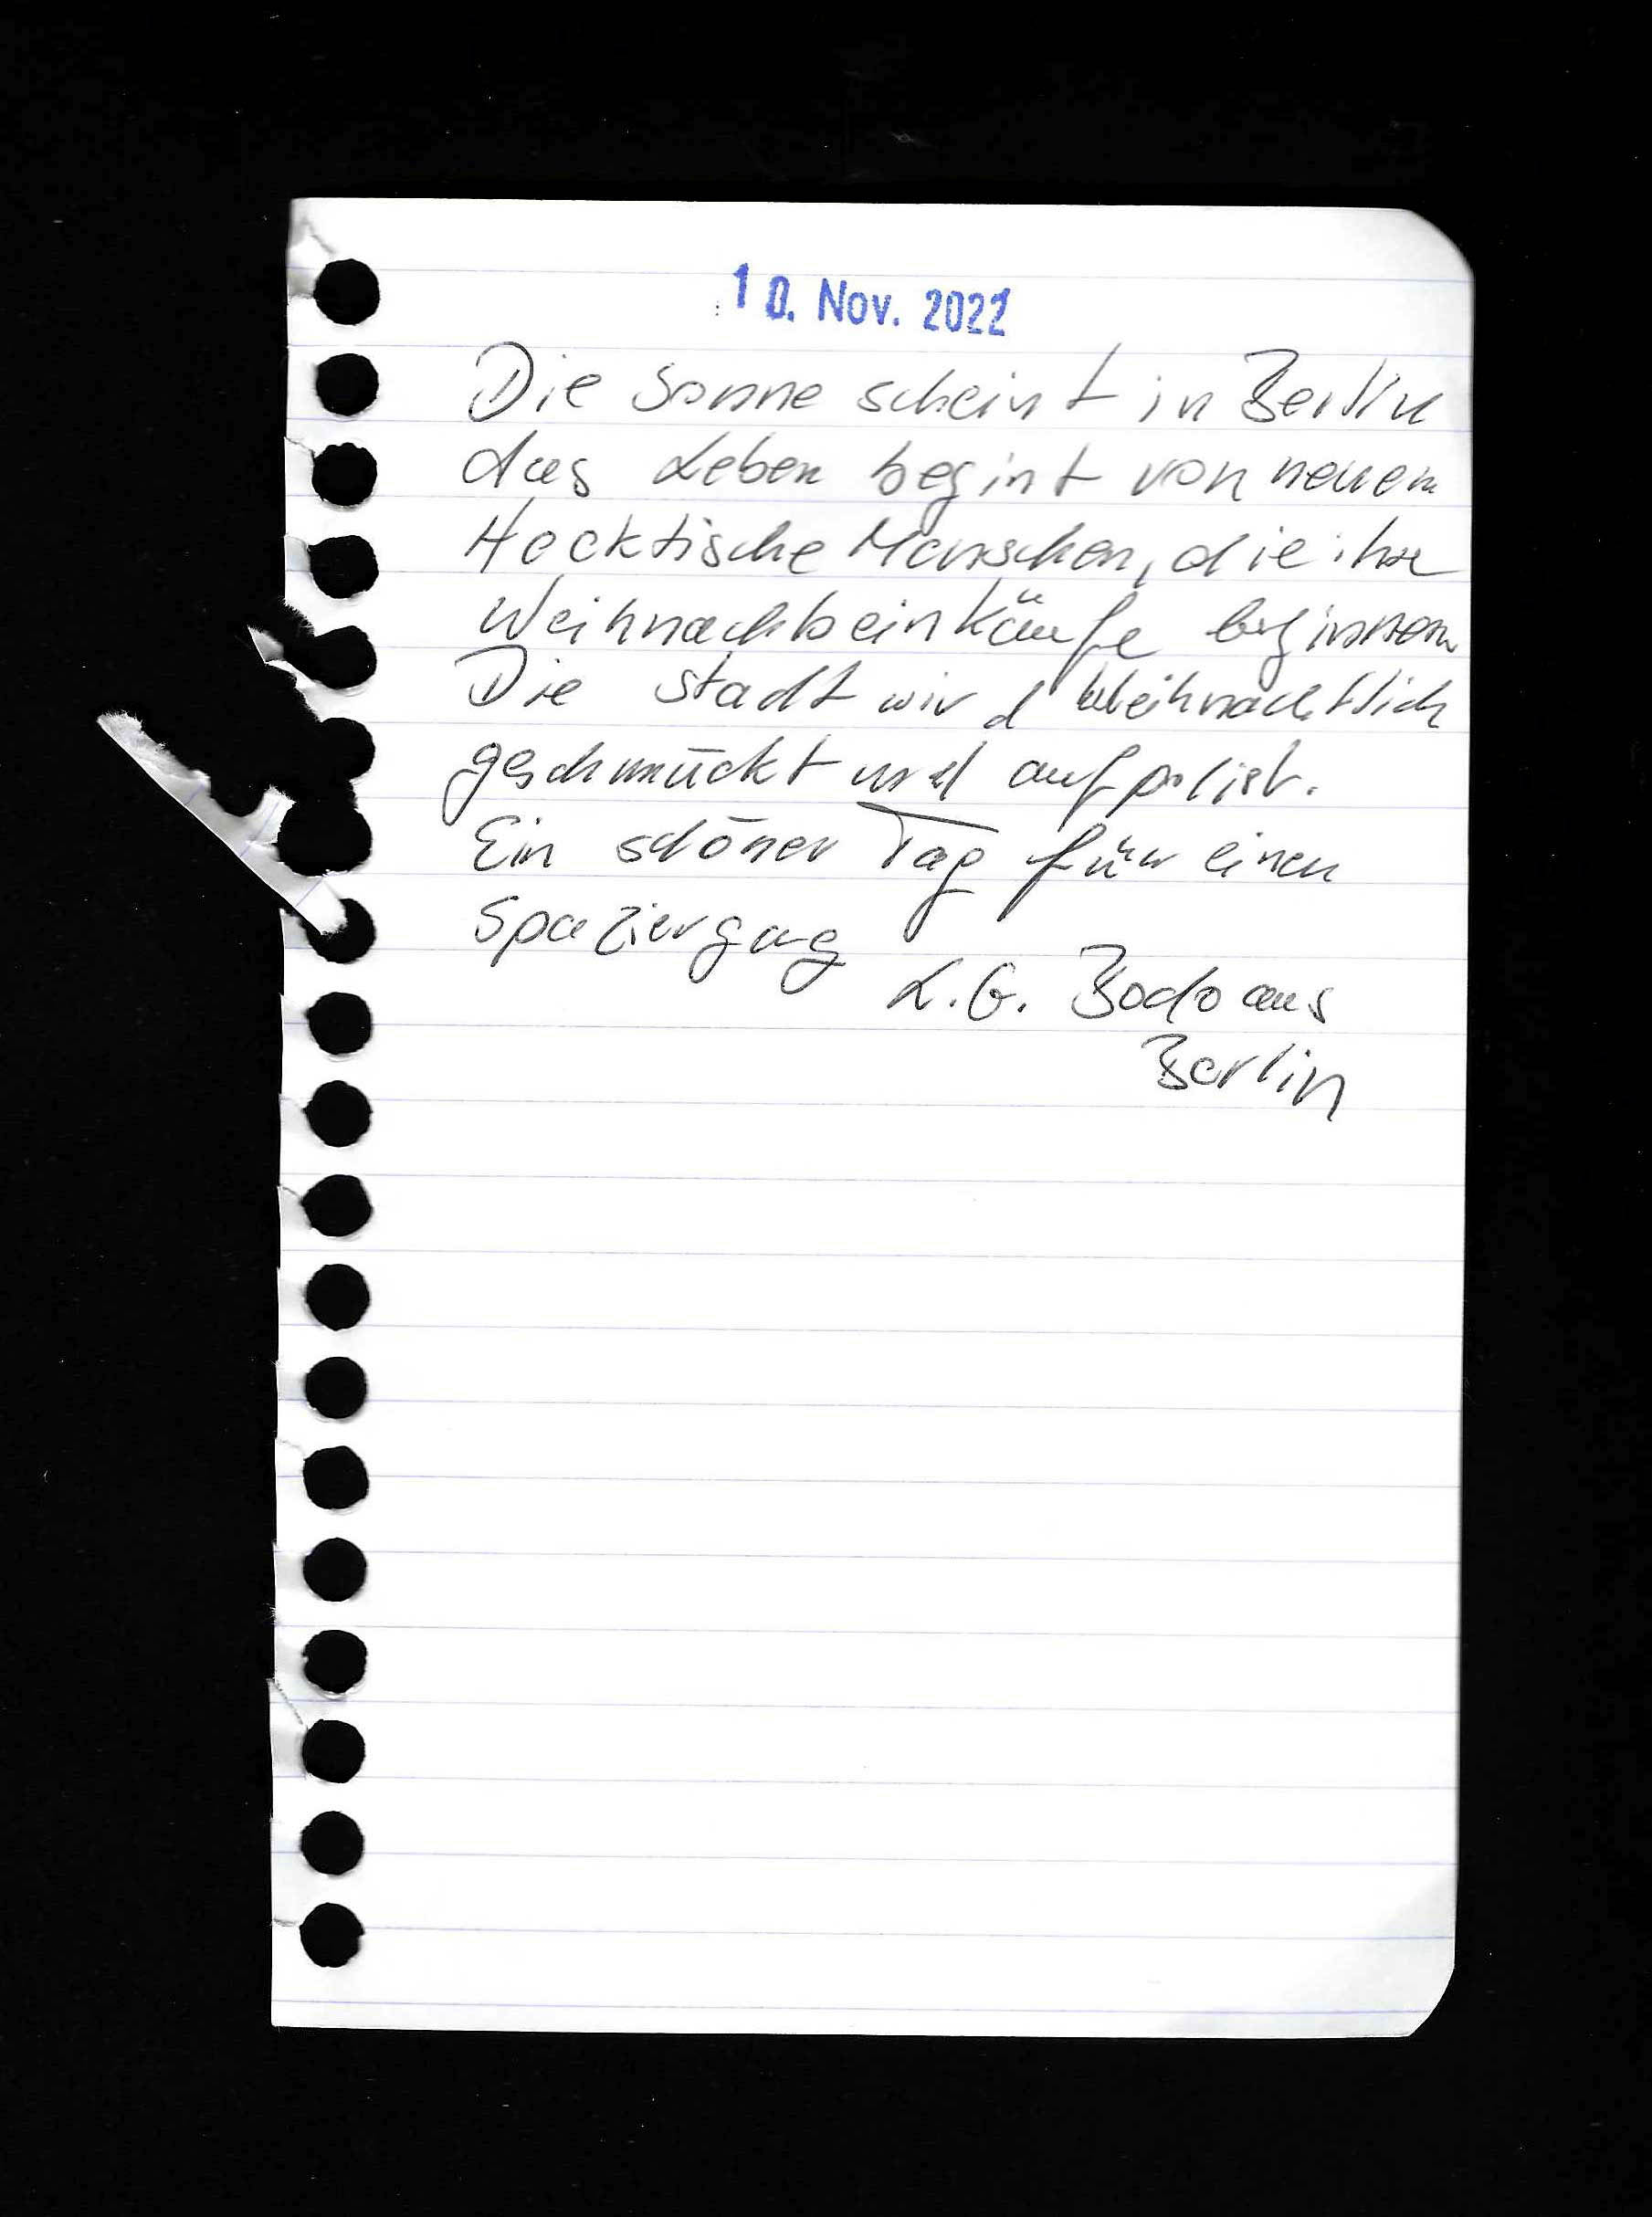 10. Nov. 2022
Die Sonne scheint in Berlin
das Leben begint von neuem
Hecktische Menschen, die ihre
Weihnachtseinkäufe beginnen
Die Stadt wird Weihnachtlich
geschmückt und aufpoliet.
Ein schöner Tag für einen
Spaziergang
L.G. Bodo aus
Berlin